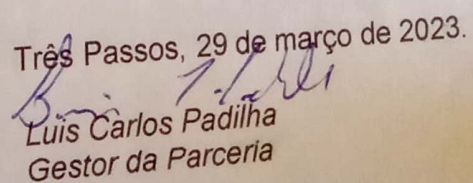 Três Passos, 29 de março de 2023.
Luis Carlos Padilha
Gestor da Parceria